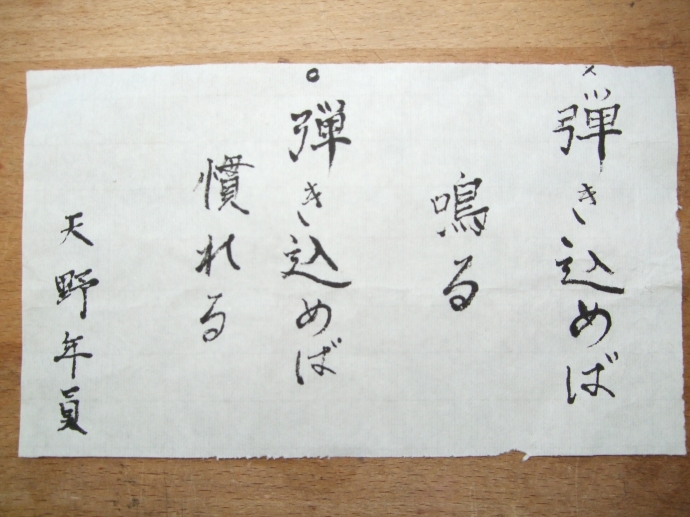 ×
弾き込めば
鳴る
○
弾き込めば
慣れる
天野年員